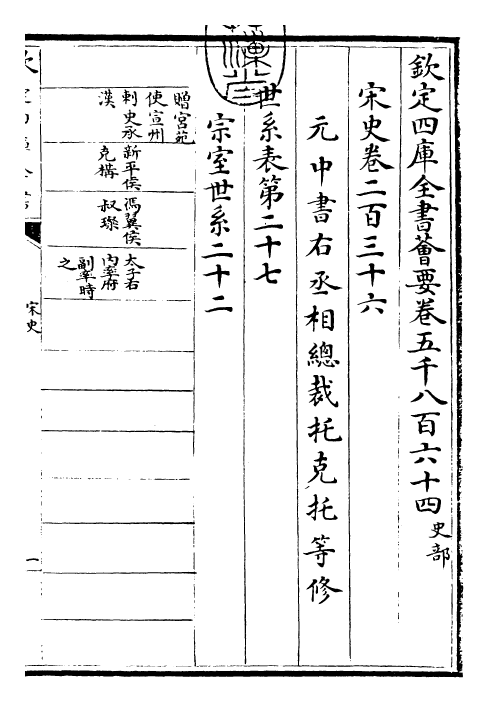 欽定四庫全書薈要卷五千八百六十四史部
宋史卷二百三十六
元中書右丞相總裁托克托等修
世系表第二十七
宗室世系二十二
贈宮苑
使宣州
刺史承
漢
新平侯
克構
馮翊侯
叔璨
太子右
內率府
副率時
之
宋史
一